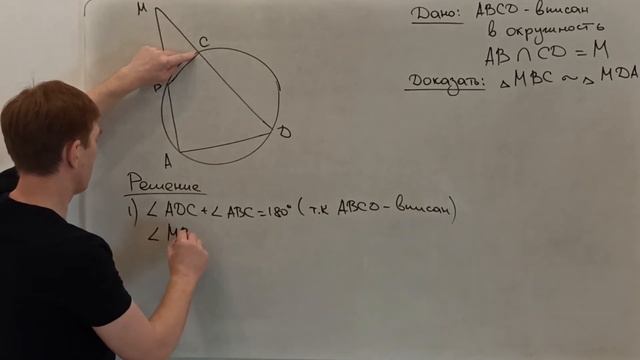 M
C
B
D
A
Дано: ABCD - вписан
в окружность
AB ∩ CD = M
Доказать: △ MBC ~ △ MDA
Решение
1) ∠ ADC + ∠ ABC = 180° (т.к ABCD - вписан)
∠ MB